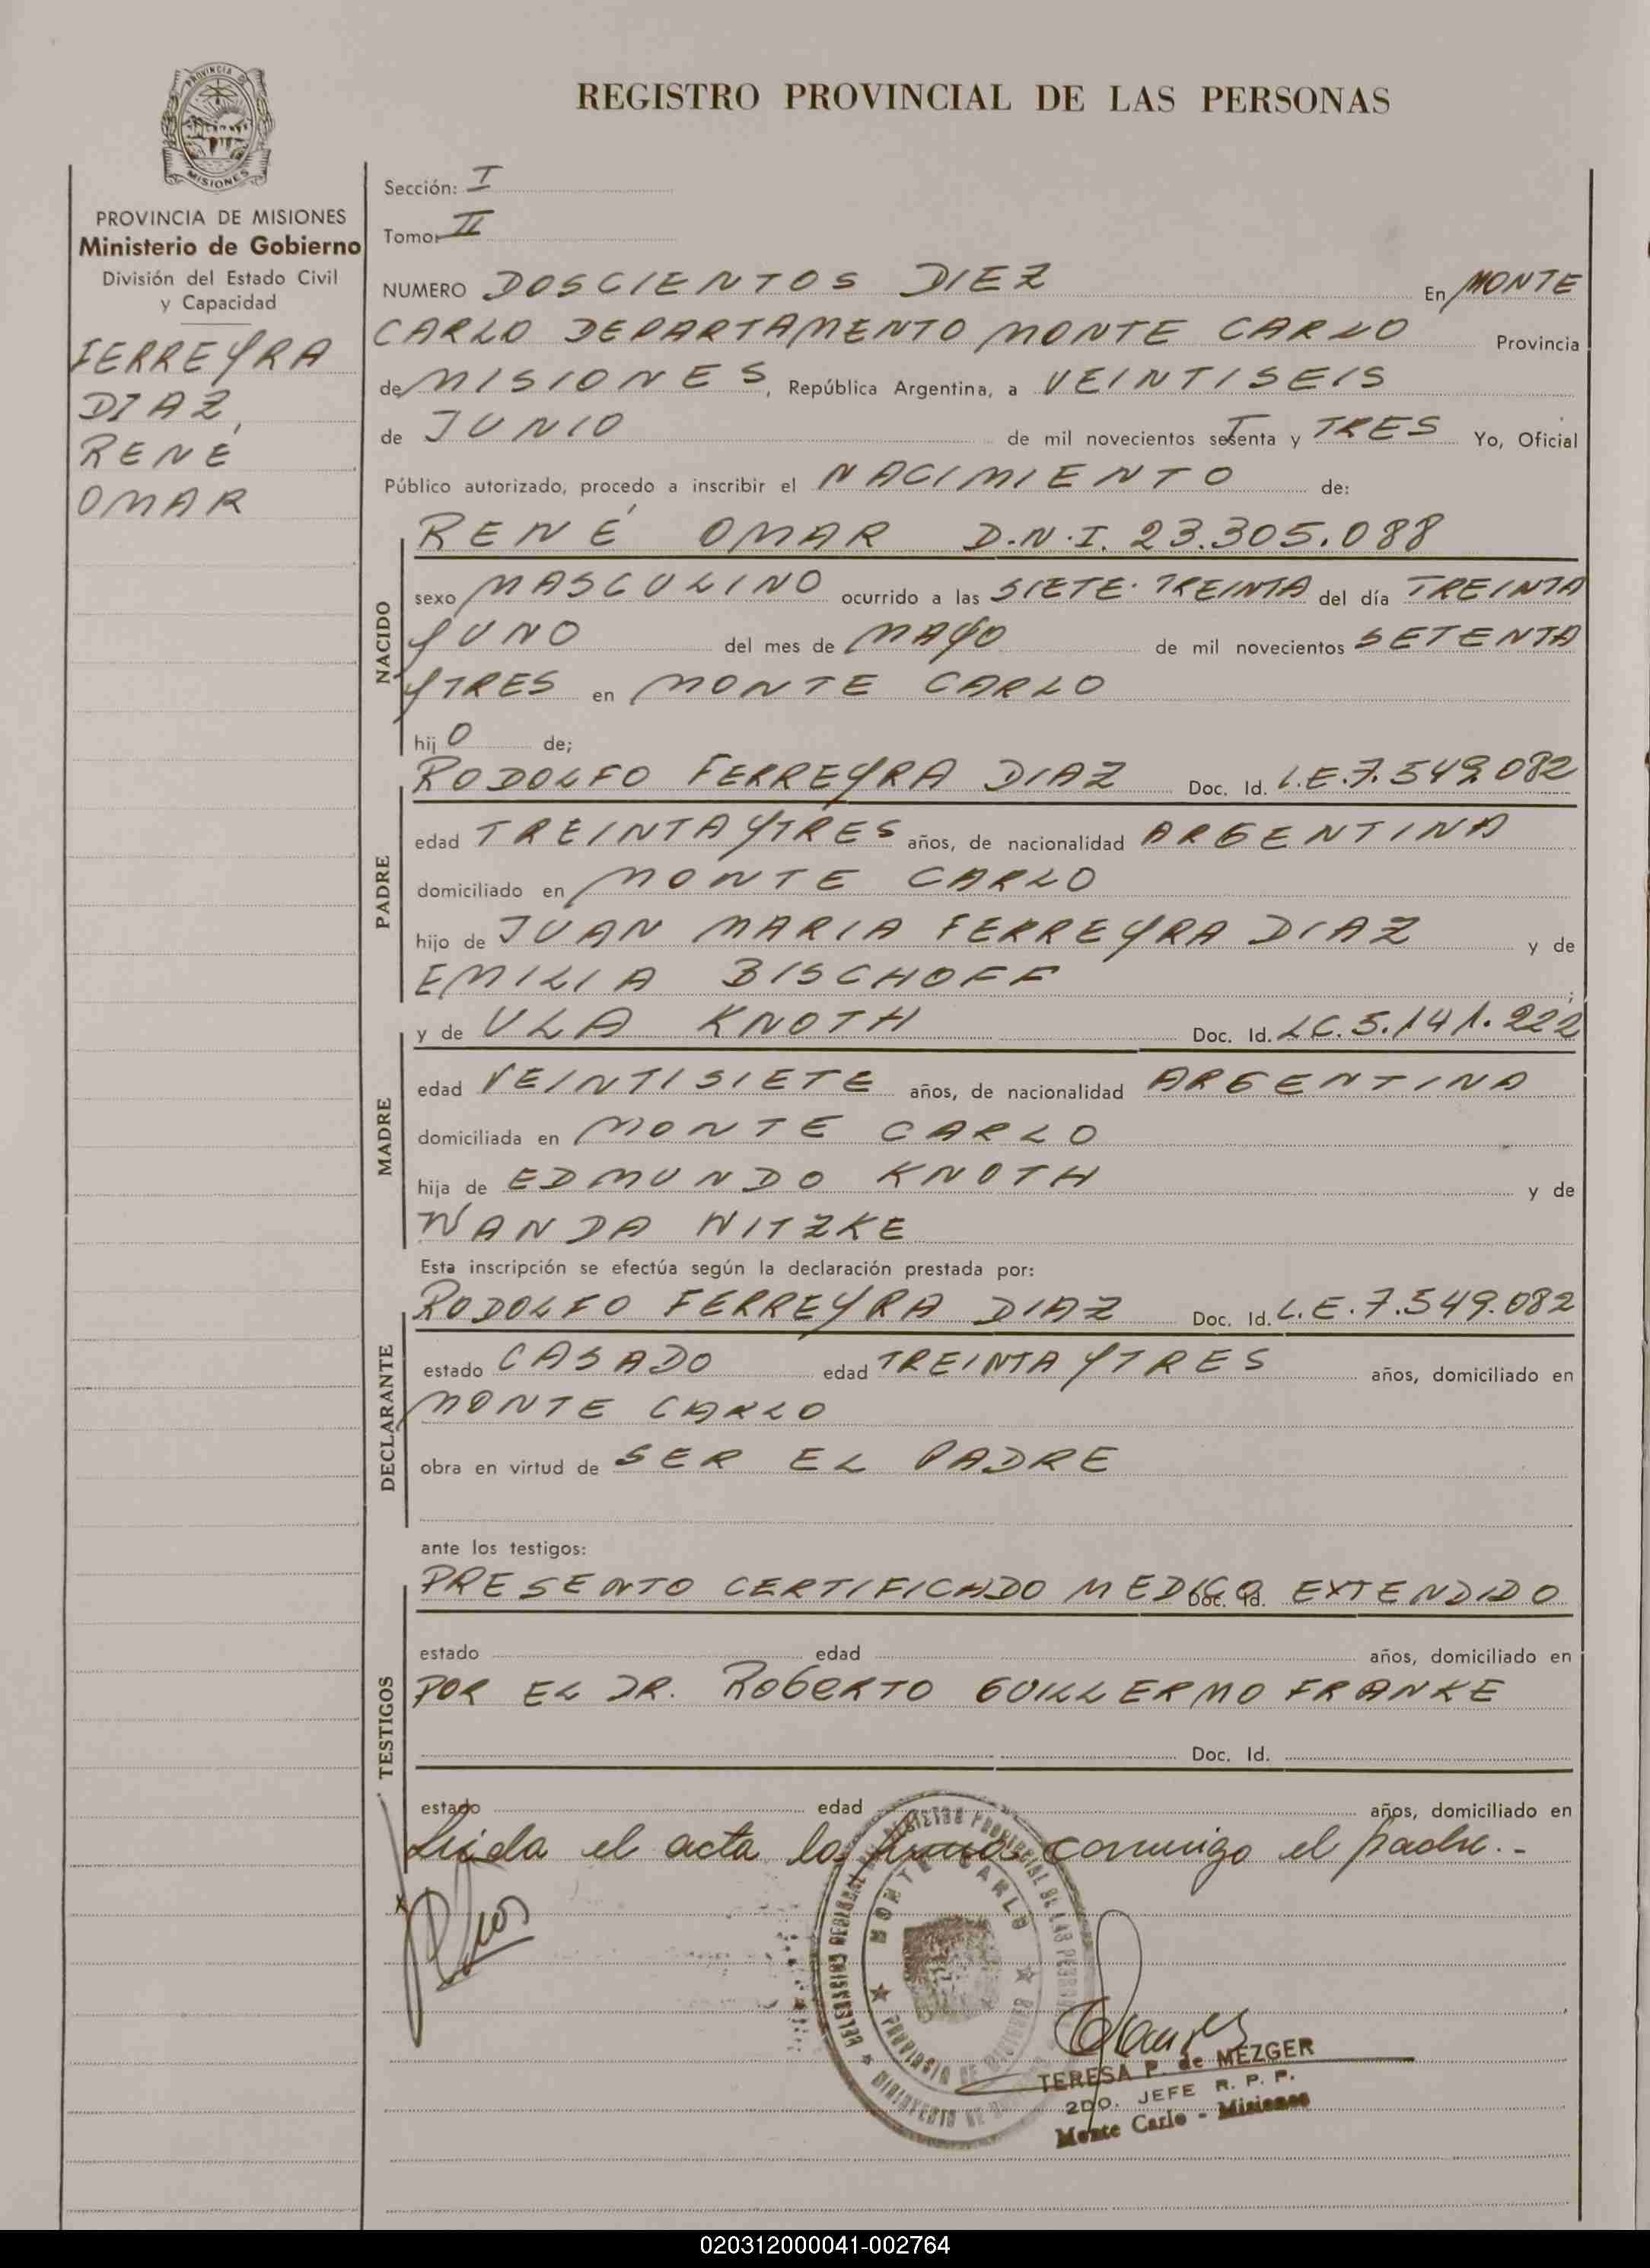 REGISTRO PROVINCIAL DE LAS PERSONAS
PROVINCIA DE
MISIONES
PROVINCIA DE MISIONES
Ministerio de Gobierno
División del Estado Civil
y Capacidad
FERREYRA
DIAZ,
RENÉ
OMAR
Sección: I
Tomo: II
NUMERO DOSCIENTOS DIEZ En MONTE
CARLO DEPARTAMENTO MONTE CARLO Provincia
de MISIONES, República Argentina, a VEINTISEIS
de JUNIO de mil novecientos setenta y TRES Yo, Oficial
Público autorizado, procedo a inscribir el NACIMIENTO de:
NACIDO
RENÉ OMAR D.N.I. 23.305.088
sexo MASCULINO ocurrido a las SIETE. TREINTA del día TREINTA
YUNO del mes de MAYO de mil novecientos SETENTA
YTRES en MONTE CARLO
hij O de;
PADRE
RODOLFO FERREYRA DIAZ Doc. Id. L.E.7.549.082
edad TREINTA YTRES años, de nacionalidad ARGENTINA
domiciliado en MONTE CARLO
hijo de JUAN MARIA FERREYRA DIAZ y de
EMILIA BISCHOFF ;
MADRE
y de ULA KNOTH Doc. Id. LC.5.141.222
edad VEINTISIETE años, de nacionalidad ARGENTINA
domiciliada en MONTE CARLO
hija de EDMUNDO KNOTH y de
WANDA WITZKE
Esta inscripción se efectúa según la declaración prestada por:
DECLARANTE
RODOLFO FERREYRA DIAZ Doc. Id. L.E.7.549.082
estado CASADO edad TREINTA YTRES años, domiciliado en
MONTE CARLO
obra en virtud de SER EL PADRE
ante los testigos:
TESTIGOS
PRESENTO CERTIFICADO MEDICO Doc. Id. EXTENDIDO
estado edad años, domiciliado en
POR EL DR. ROBERTO GUILLERMO FRANKE
Doc. Id.
estado edad años, domiciliado en
Leída el acta la firma conmigo el padre.-
MONTE CARLO
TERESA P. de MEZGER
2DO. JEFE R. P. P.
Monte Carlo - Misiones
020312000041-002764